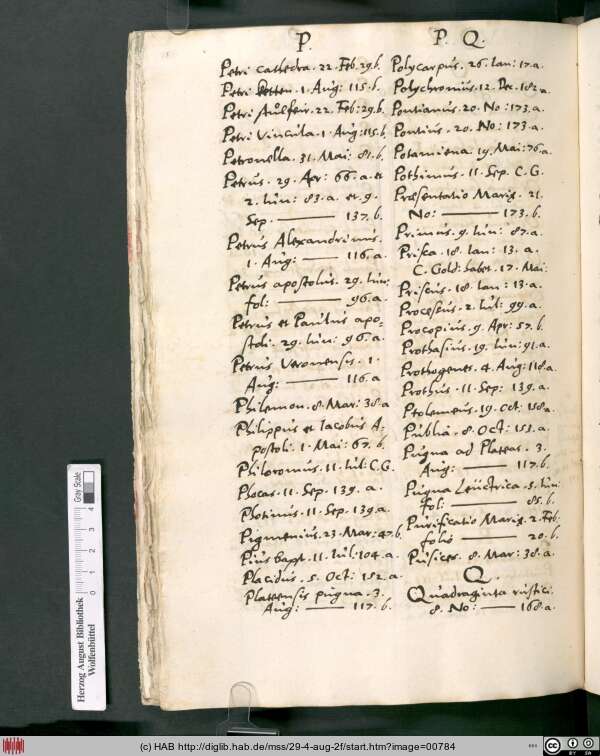 P.
Petri Cathedra. 22. Feb. 29. b.
Petri ketten. 1. Aug: 115. b.
Petri 22. Feb: 29. b.
Petri Vincula. 1. Aug: 115. b.
Petronella. 31. Mai: 81. b.
Petrus. 29. Apr: 66. a. et
2. Iun: 83. a. et 9.
Sep. 137. b.
Petrus Alexandrinus.
1. Aug: 116. a.
Petrus apostolus. 29. Iun:
fol: 96. a.
Petrus et Paulus apo-
stoli. 29. Iun: 96. a.
Petrus Veronensis. 1.
Aug: 116. a
Philemon. 8. Mar: 38. a
Philippus et Iacobus A-
postoli. 1. Mai: 67. b.
Philoromus. 11. Iul: C. G.
Phocas. 11. Sep. 139. a.
Photinus. 11. Sep. 139. a.
Pigmenius. 23. Mar: 47. b.
Pius bapt. 11. Iul. 104. a.
Placidus. 5. Oct: 152. a.
Plateensis pugna. 3.
Aug: 117. b.
P. Q.
Polycarpus. 26. Ian: 17. a.
Polychronius. 12. Dec. 182. a.
Pontianus. 20. No: 173. a.
Pontius. 20. No: 173. a.
Potamiena. 19. Mai: 76. a.
Pothinus. 11. Sep. C. G.
Præsentatio Mariæ. 21.
No: 173. b.
Primus. 9. Iun: 87. a.
Prisca. 18. Ian: 13. a.
C. Gold: habet. 17. Mai:
Priscus. 18. Ian: 13. a.
Processus. 2. Iul: 99. a.
Procopius. 9. Apr: 57. b.
Prothasius. 19. Iun: 91. a.
Prothogenes. 4. Aug: 118. a.
Prothus. 11. Sep: 139. a.
Ptolomeus. 19. Oct: 158. a.
Publia. 8. Oct: 153. a.
Pugna ad Plateas. 3.
Aug: 117. b.
Pugna Leuctrica. 5. Iun:
fol: 85. b.
Purificatio Mariæ. 2. Feb.
folio 20. b.
Pusices. 8. Mar: 38. a.
Q.
Quadraginta rustici.
8. No: 168. a.
Herzog August Bibliothek
Wolfenbüttel
Gray Scale
0 1 2 3 4
(c) HAB http://diglib.hab.de/mss/29-4-aug-2f/start.htm?image=00784
cc BY SA